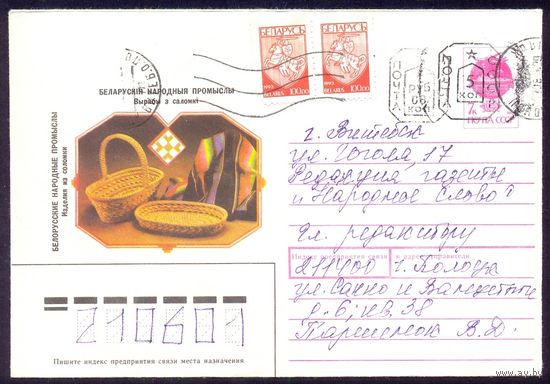 БЕЛАРУСЬ
БЕЛАРУСЬ
1993
BELARUS 100.00
1993
BELARUS 100.00
ПОЧТА
РУБ
КОП
ПОЧТА
5
КОП
7к
ПОЧТА СССР
БЕЛАРУСКІЯ НАРОДНЫЯ ПРОМЫСЛЫ
Вырабы з саломкі
БЕЛОРУССКИЕ НАРОДНЫЕ ПРОМЫСЛЫ
Изделия из соломки
г. Витебск
ул. Гоголя, 17
Редакция газеты
"Народное Слово"
Гл. редактору
Индекс предприятия связи и адрес отправителя
211400 г. Полоцк
ул. Сакко и Ванцетти
д. 6, кв. 38
В. Д.
210601
Пишите индекс предприятия связи места назначения
www.ay.by